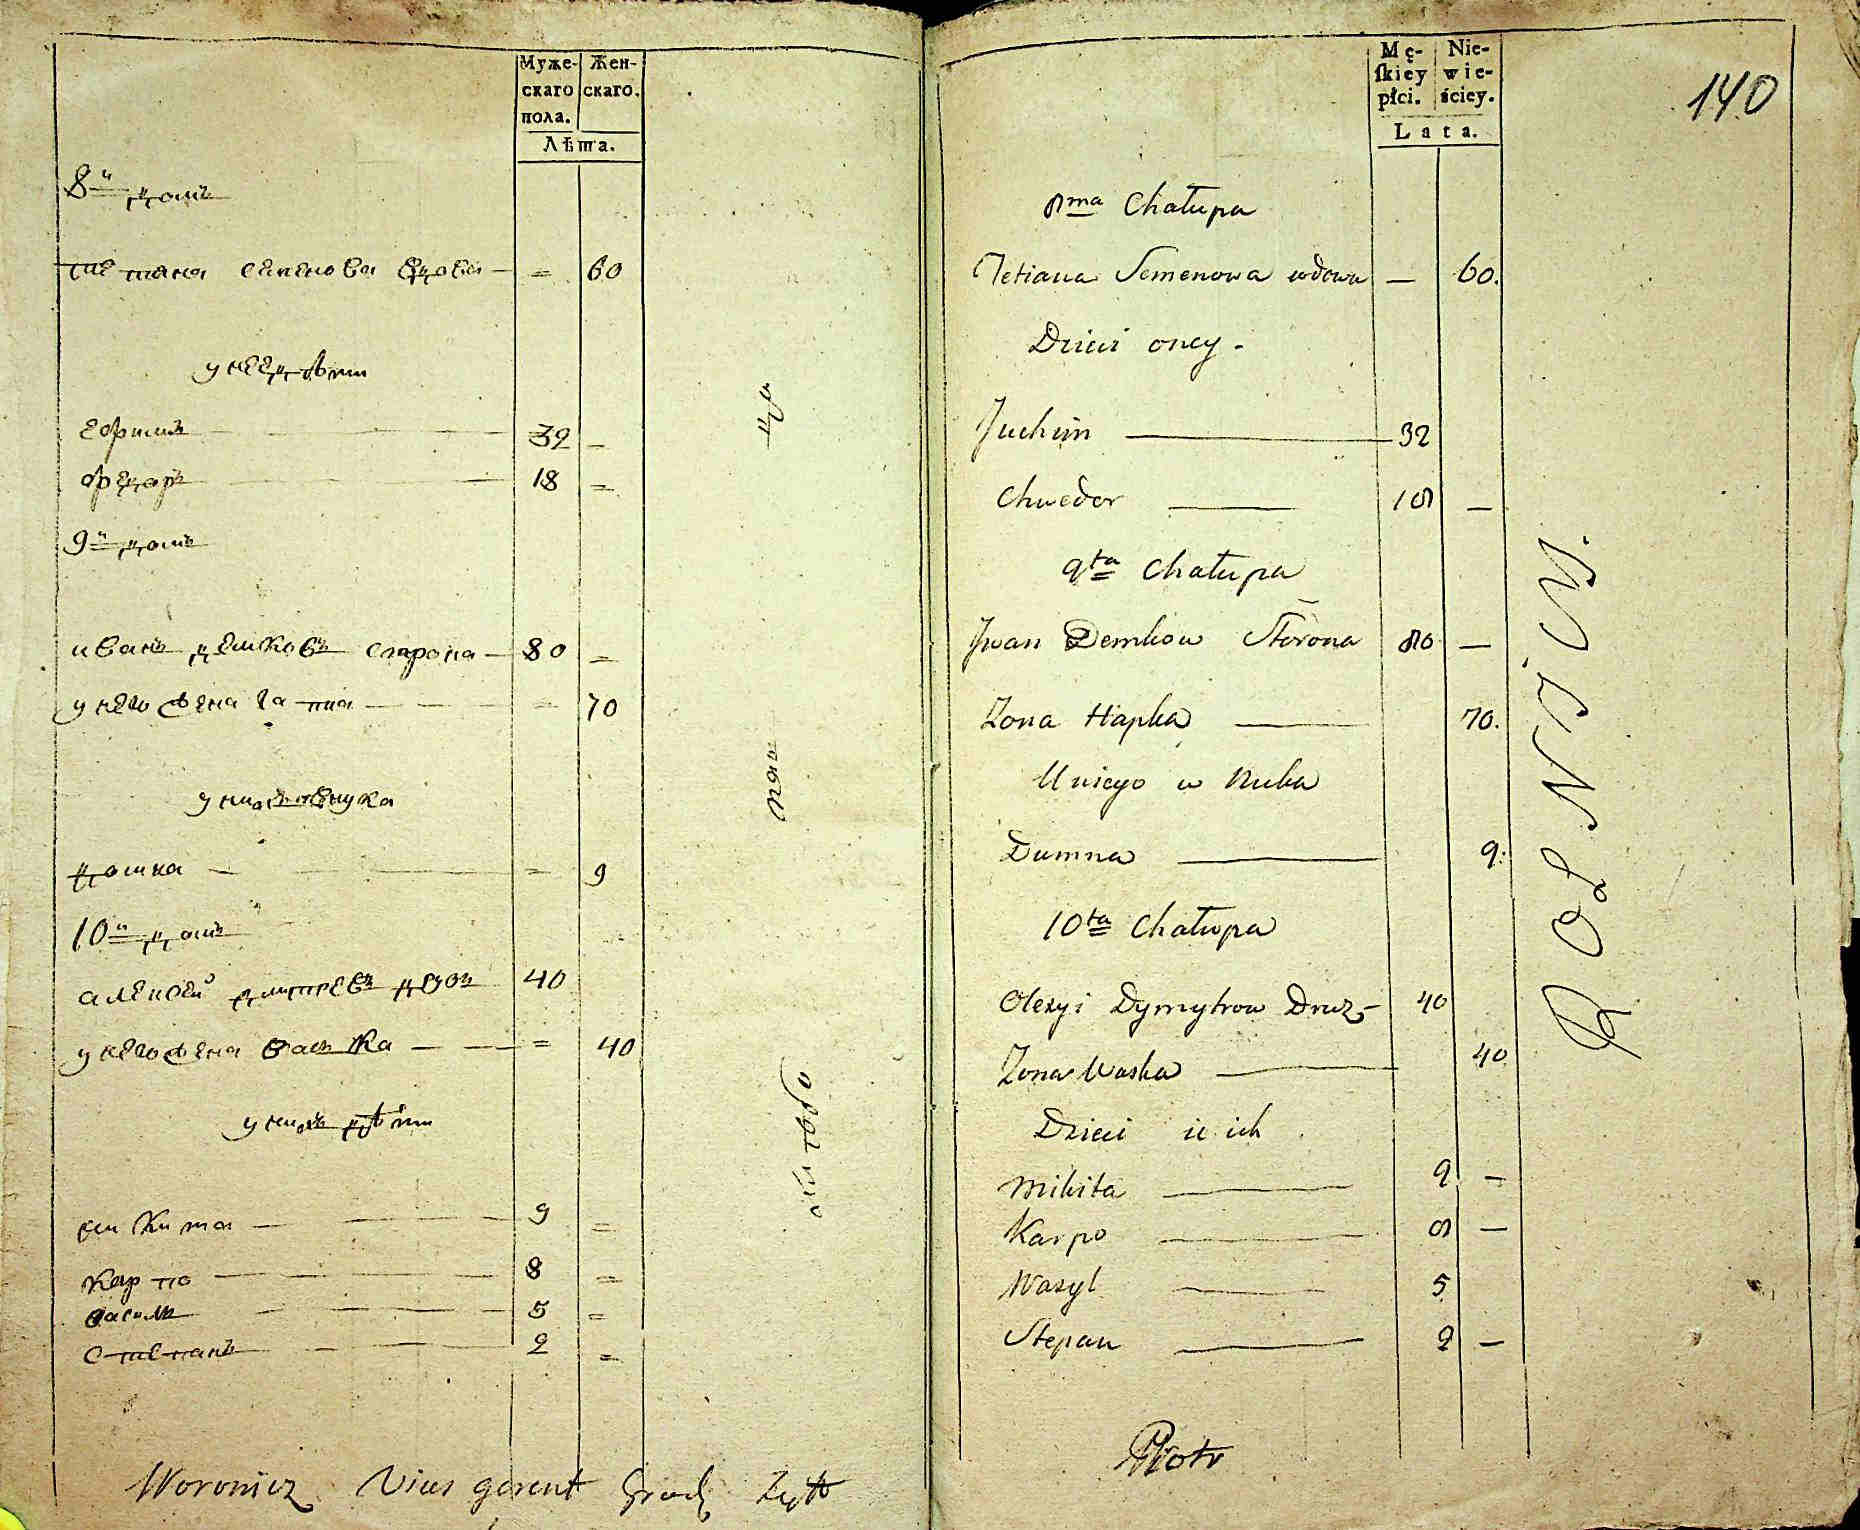 Муже-
скаго
пола.
Жен-
скаго.
Лѣта.
8й домъ
татиана семенова вдова — = 60
у нее дѣти
ефимъ — 32 —
федоръ — 18 =
9й домъ
иванъ демковъ сторона — 80 =
у него жена гапка — = 70
у нихъ внука
домна — = 9
10й домъ
алексей дмитревъ 40
у него жена васька — = 40
у нихъ дѣти
микита — 9 =
карпо — 8 =
василь — 5 =
степанъ — 2 =
Woronicz Vices gerent Grodz
Mę-
skiey
płci.
Nie-
wie-
ściey.
Lata.
140
8ma Chałupa
Tetiana Semenowa wdowa — 60.
Dzieci oney -
Juchim — 32
Chwedor — 18 —
9ta Chałupa
Jwan Demkow Storona 80 —
Zona Hapka — 70.
U niego w Nuka
Dumna — 9.
10ta Chałupa
Olexyi Dymytrow 40
Zona Waska — 40
Dzieci u ich
Mikita — 9 —
Karpo — 8 —
Wasyl — 5
Stepan — 2 —
Piotr